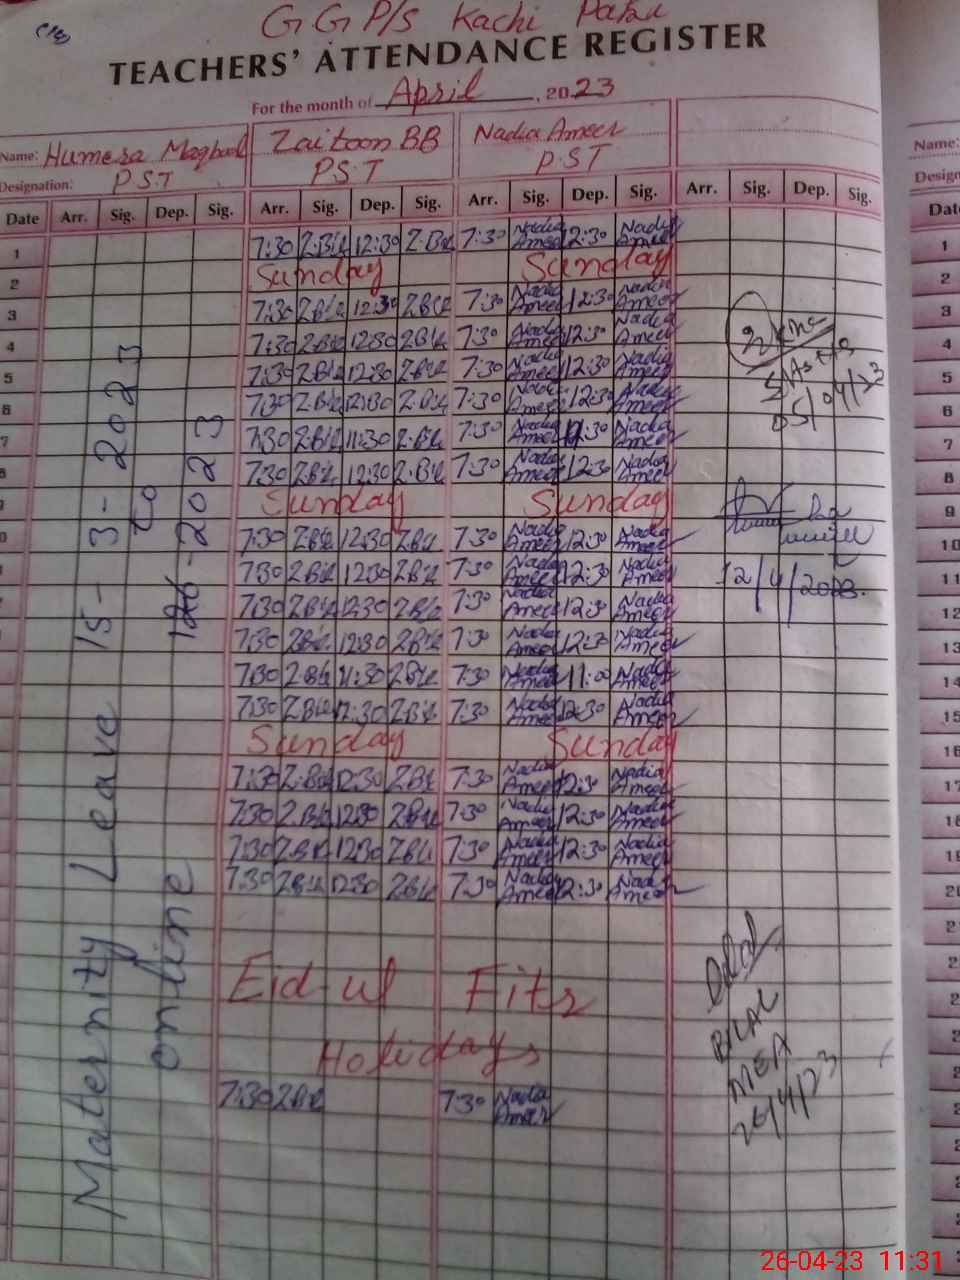 (18)
G G P/s Kachi
TEACHERS' ATTENDANCE REGISTER
For the month of April, 2023
Name: Humera Maqbool Zaitoon BB Nadia Ameer
Designation: P.S.T P.S.T P.S.T
Date Arr. Sig. Dep. Sig. Arr. Sig. Dep. Sig. Arr. Sig. Dep. Sig. Arr. Sig. Dep. Sig.
1 7:30 Z.Bibi 12:30 Z.Bibi 7:30 Nadia Ameer 12:30 Nadia Ameer
2 Sunday Sunday
3 7:30 Z.Bibi 12:30 Z.Bibi 7:30 Nadia Ameer 12:30 Nadia Ameer
4 7:30 Z.Bibi 12:30 Z.Bibi 7:30 Nadia Ameer 12:30 Nadia Ameer
5 7:30 Z.Bibi 12:30 Z.Bibi 7:30 Nadia Ameer 12:30 Nadia Ameer
6 7:30 Z.Bibi 12:30 Z.Bibi 7:30 Nadia Ameer 12:30 Nadia Ameer
7 7:30 Z.Bibi 11:30 Z.Bibi 7:30 Nadia Ameer Nadia Ameer
8 7:30 Z.Bibi 12:30 Z.Bibi 7:30 Nadia Ameer 12:30 Nadia Ameer
9 Sunday Sunday
10 7:30 Z.Bibi 12:30 Z.Bibi 7:30 Nadia Ameer 12:30 Nadia Ameer
11 7:30 Z.Bibi 12:30 Z.Bibi 7:30 Nadia Ameer 12:30 Nadia Ameer
12 7:30 Z.Bibi 12:30 Z.Bibi 7:30 Nadia Ameer 12:30 Nadia Ameer
13 7:30 Z.Bibi 12:30 Z.Bibi 7:30 Nadia Ameer 12:30 Nadia Ameer
14 7:30 Z.Bibi 11:30 Z.Bibi 7:30 Nadia Ameer 11:00 Nadia Ameer
15 7:30 Z.Bibi 12:30 Z.Bibi 7:30 Nadia Ameer 12:30 Nadia Ameer
16 Sunday Sunday
17 7:30 Z.Bibi 12:30 Z.Bibi 7:30 Nadia Ameer 12:30 Nadia Ameer
18 7:30 Z.Bibi 12:30 Z.Bibi 7:30 Nadia Ameer 12:30 Nadia Ameer
19 7:30 Z.Bibi 12:30 Z.Bibi 7:30 Nadia Ameer 12:30 Nadia Ameer
20 7:30 Z.Bibi 12:30 Z.Bibi 7:30 Nadia Ameer 12:30 Nadia Ameer
Eid-ul Fitr
Holidays
7:30 Z.Bibi 7:30 Nadia Ameer
Maternity Leave 15-3-2023
online to
-2023
05/04/23
12/4/2023.
BILAL
MEA
26/4/23
Name:
Date
26-04-23 11:31